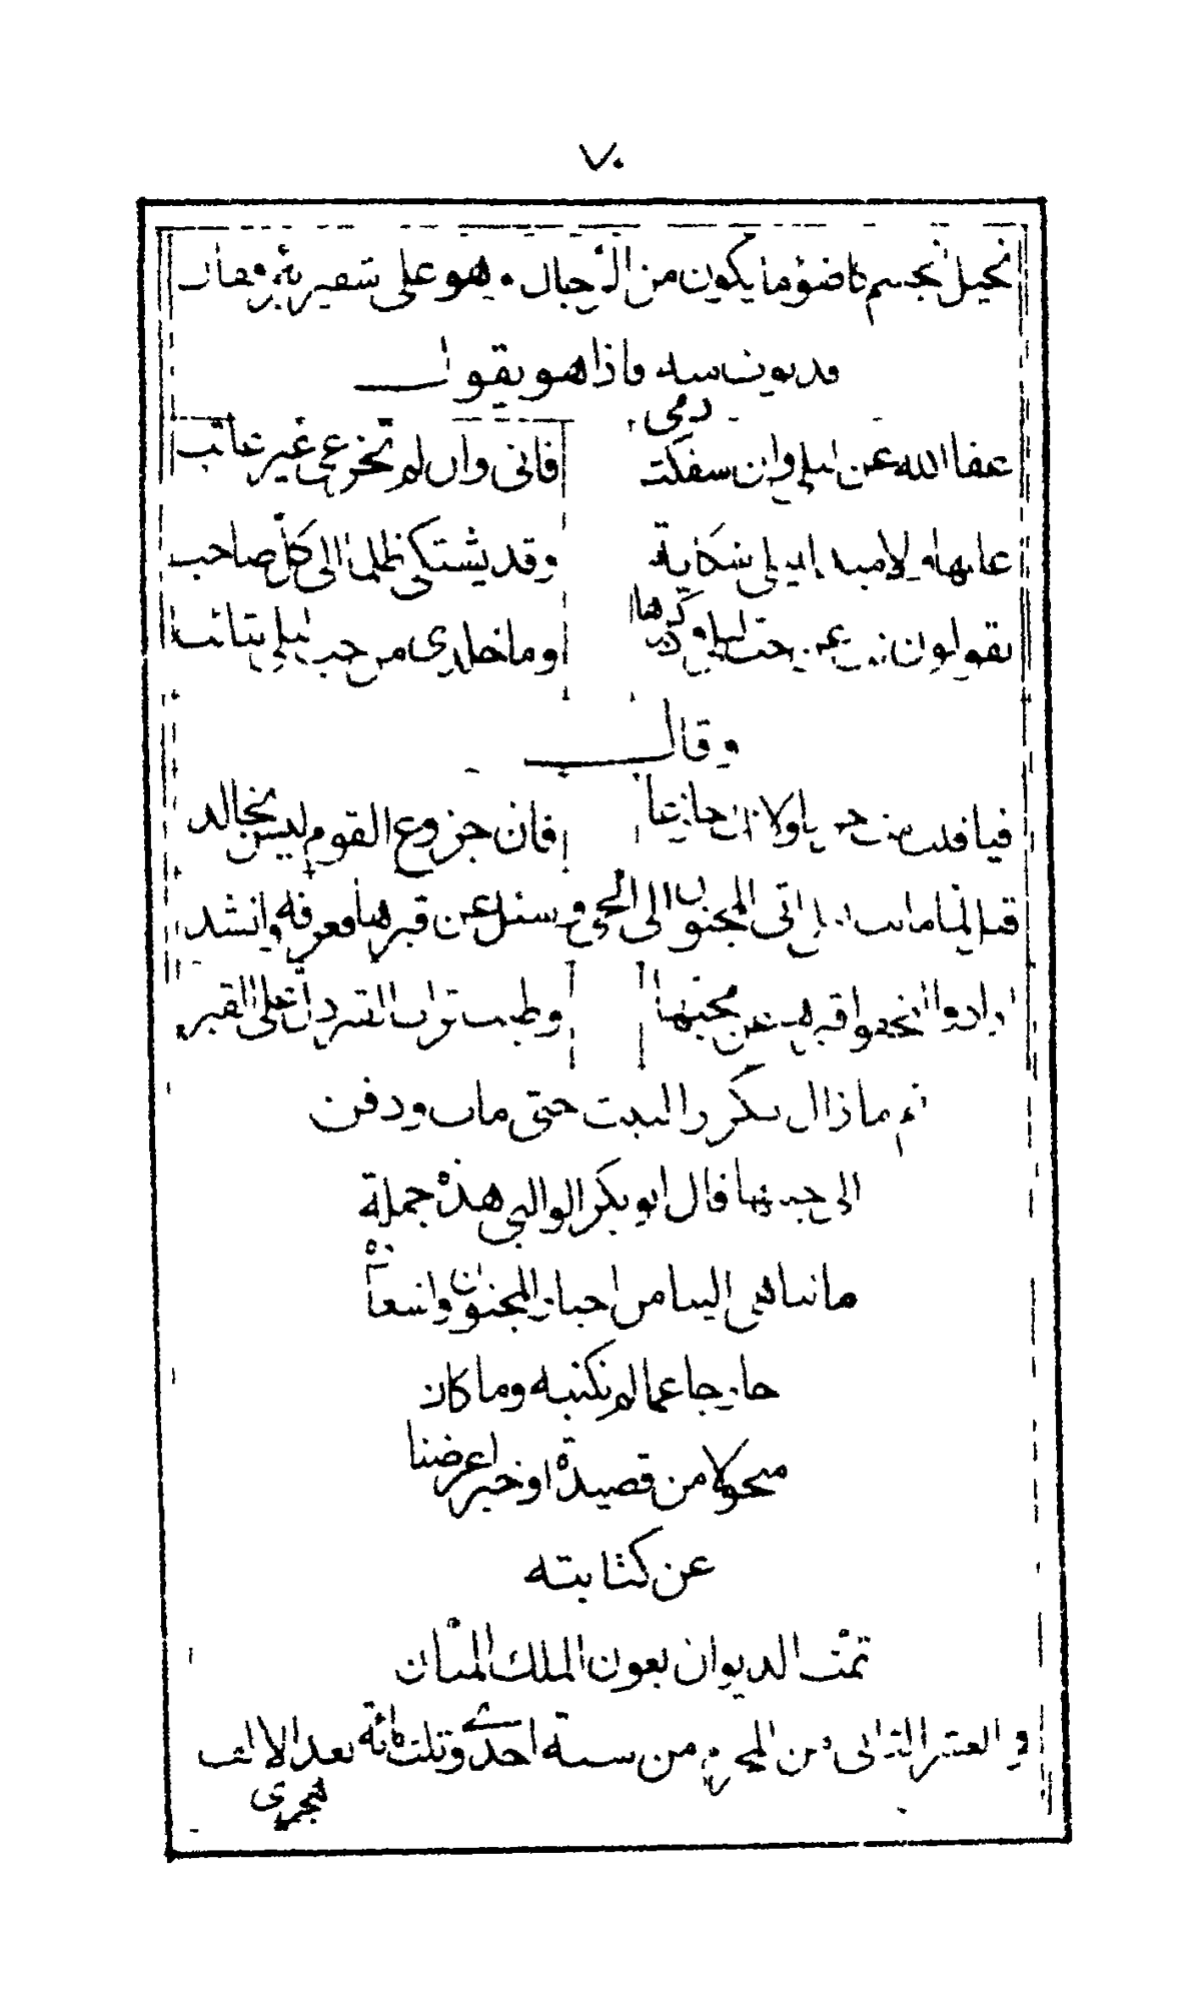 ٧٠
نحيل الجسم كاضوؤ ما يكون من الرجال وهو على شفير بئر وقال
فاذا هو يقول
عفا الله عن ليلى وان سفكت دمى فانى وان لم تجزعى غير عاتب
عليها ولا مبد لليلى شكاية وقد يشتكى ظلما الى كل صاحب
يقولون تب عن حب ليلى وذكرها وما خلدى من حب ليلى بتائب
وقال
فيا قلب مت ولا تك جازعا فان جزوع القوم ليس بخالد
قيل لما ماتت ليلى اتى المجنون الى الحى وسئل عن قبرها فعرفه وانشد
ارادوا ليخفوا قبرها عن محبها وطيب تراب القبر دل على القبر
ثم مازال يكرر البيت حتى مات ودفن
الى جنبها قال ابو بكر الوالبى هذه جملة
ما تناهى الينا من اخبار المجنون واشعاره
خارجا عما لم نكتبه وما كان
منحولا من قصيدة او خبر اعرضنا
عن كتابته
تمت الديوان بعون الملك المنان
فى العشر الثانى من المحرم من سنة احدى وثلثمائة بعد الالف
هجرى